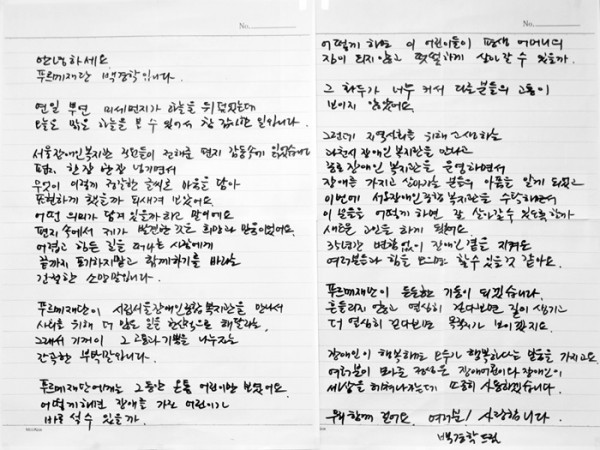 No.
안녕하세요.
푸르메재단 백경학입니다.
연일 뿌연 미세먼지가 하늘을 뒤덮었는데
오늘은 맑은 하늘을 볼 수 있어서 참 감사한 일입니다.
서울장애인복지관 직원들이 전해준 편지 감동스럽게 읽었습니다
편지 한장 한장 넘기면서
무엇이 이렇게 정갈한 글씨로 마음을 담아
표현하게 했을까 되새겨 보았어요.
어떤 의미가 담겨 있을까 하고 말이에요
편지 속에서 제가 발견한 것은 희망과 믿음이었어요.
어렵고 힘든 길을 떠나는 사람에게
끝까지 포기하지말고 함께하기를 바라는
간절한 소망말입니다.
푸르메재단이 시립서울장애인종합복지관을 만나서
사회를 위해 더 많은 일을 헌신적으로 해달라는,
그래서 기꺼이 그 고통과 기쁨을 나누자는
간곡한 부탁말입니다.
푸르메재단에게는 그동안 온통 어린이만 보였어요.
어떻게하면 장애를 가진 어린이가
바로 설 수 있을까.
No.
어떻게 하면 이 어린이들이 평생 어머니의
짐이 되지 않고 떳떳하게 살아갈 수 있을까.
그 화두가 너무 커서 다른 분들의 고통이
보이지 않았어요.
그런데 지역사회를 위해 고생하는
과천시장애인복지관을 만나고
종로장애인복지관을 운영하면서
장애를 가지고 살아가는 분들의 아픔을 알게 되었고
이번에 서울장애인종합복지관을 수탁하면서
이 분들을 어떻게 하면 잘 살아갈 수 있도록할까
새로운 고민을 하게 되었어요.
36년간 변함없이 장애인 곁을 지켜온
여러분들과 힘을 모으면 할 수 있을것 같아요.
푸르메재단이 든든한 기둥이 되겠습니다.
흔들리지 않고 열심히 걷다보면 길이 생기고
더 열심히 걷다보면 목적지가 보이겠지요.
장애인이 행복해야 모두가 행복하다는 믿음을 가지고요.
여러분이 모아준 정성은 장애어린이와 장애인이
세상을 헤쳐나가는데 소중히 사용하겠습니다.
우리 함께 걸어요. 여러분! 사랑합니다.
백경학 드림